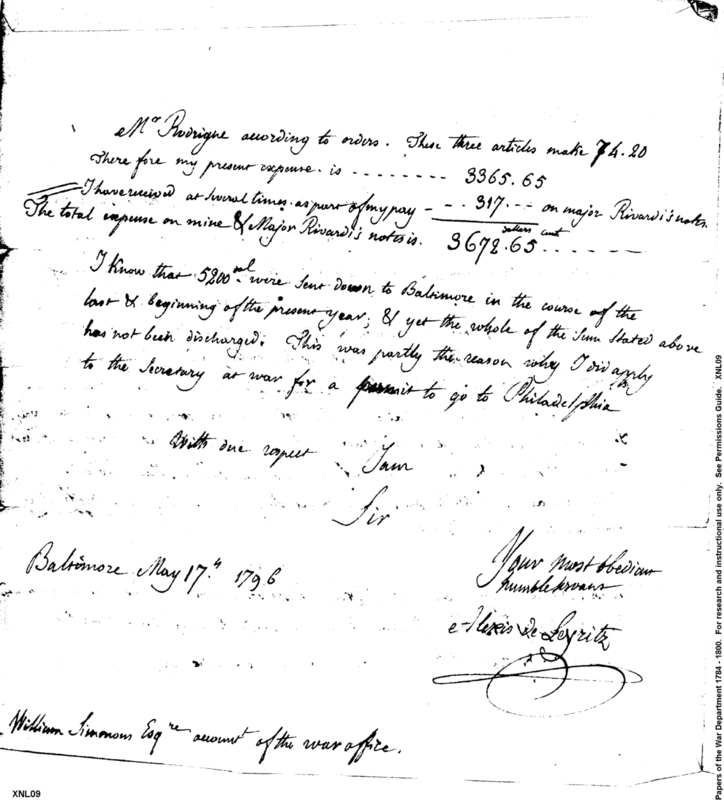 Mr Rodrigue according to orders. These three articles make 74.20
There fore my present expense. is - - - - - - - - 3365.65
I have received at several times. as part of my pay - - - 317. - - - on major Rivardi's notes.
The total expense on mine & Major Rivardi's notes is. dollars cent 3672.65 - - - - - -
I Know that 5200 dol. were sent down to Baltimore in the course of the
last & beginning of the present year; & yet the whole of the sum stated above
has not been discharged. This was partly the reason why I did apply
to the Secretary at war for a permit to go to Philadelphia
With due respect I am
Sir
Your most obedient
humble servant
Baltimore May 17.th 1796
Alexis de Leyritz
William Simmons Esqre account of the war office.
XNL09
Papers of the War Department 1784 - 1800. For research and instructional use only. See Permissions Guide. XNL09